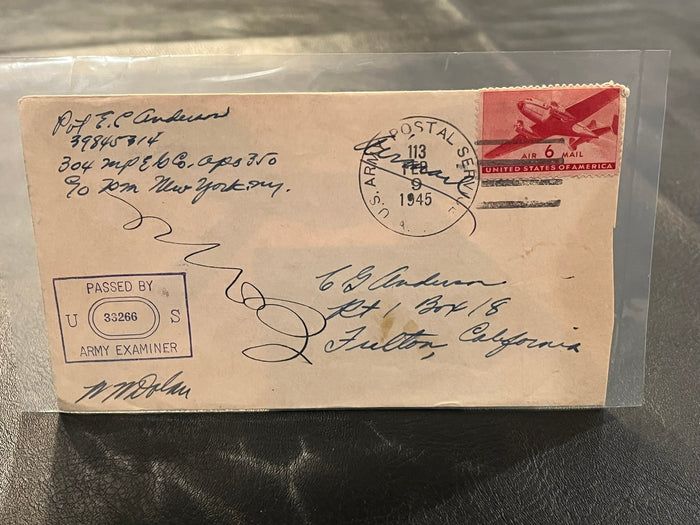 Pvt E.C Anderson
39845314
304 MP E G Co. APO 350
c/o P.M. New York N.Y.
U.S. ARMY POSTAL SERVICE
113
FEB
9
1945
AIR 6 MAIL
UNITED STATES OF AMERICA
PASSED BY
U 33266 S
ARMY EXAMINER
C G Anderson
Rt 1 Box 18
Fulton, California
W M Dolan